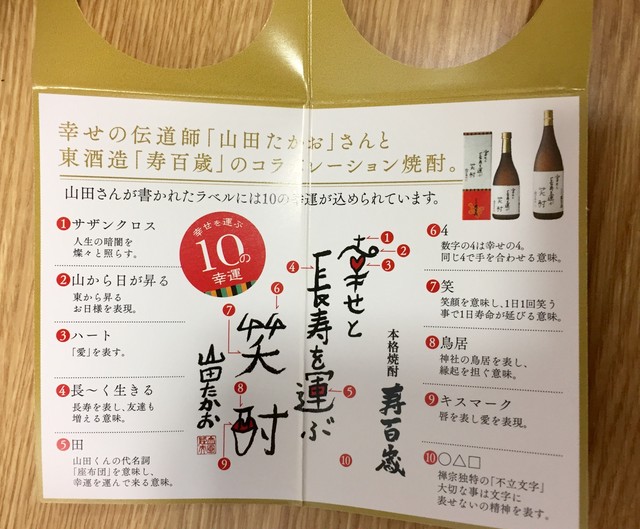 幸せの伝道師「山田たかお」さんと
東酒造「寿百歳」のコラボレーション焼酎。
山田さんが書かれたラベルには10の幸運が込められています。
1 サザンクロス
人生の暗闇を
燦々と照らす。
2 山から日が昇る
東から昇る
お日様を表現。
3 ハート
「愛」を表す。
4 長〜く生きる
長寿を表し、友達も
増える意味。
5 田
山田くんの代名詞
「座布団」を意味し、
幸運を運んで来る意味。
幸せを運ぶ
10の
幸運
1
2
3
4
幸せと
長寿を運ぶ
5
6
7
笑酎
8
9
山田たかお
本格焼酎
寿百歳
10
6 4
数字の4は幸せの4。
同じ4で手を合わせる意味。
7 笑
笑顔を意味し、1日1回笑う
事で1日寿命が延びる意味。
8 鳥居
神社の鳥居を表し、
縁起を担ぐ意味。
9 キスマーク
唇を表し愛を表現。
10 ○△□
禅宗独特の「不立文字」
大切な事は文字に
表せないの精神を表す。